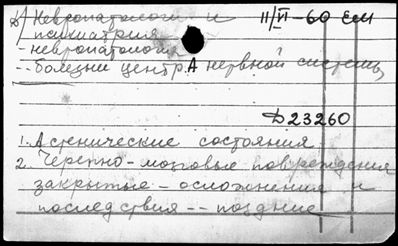 А/ Невропатология и 11/VI-60 ЕМ
психиатрия
- невропатология
-- болезни центр. нервной системы
Д23260
1. Астенические состояния
2. Черепно-мозговые повреждения
закрытые - осложнения и
последствия -- поздние